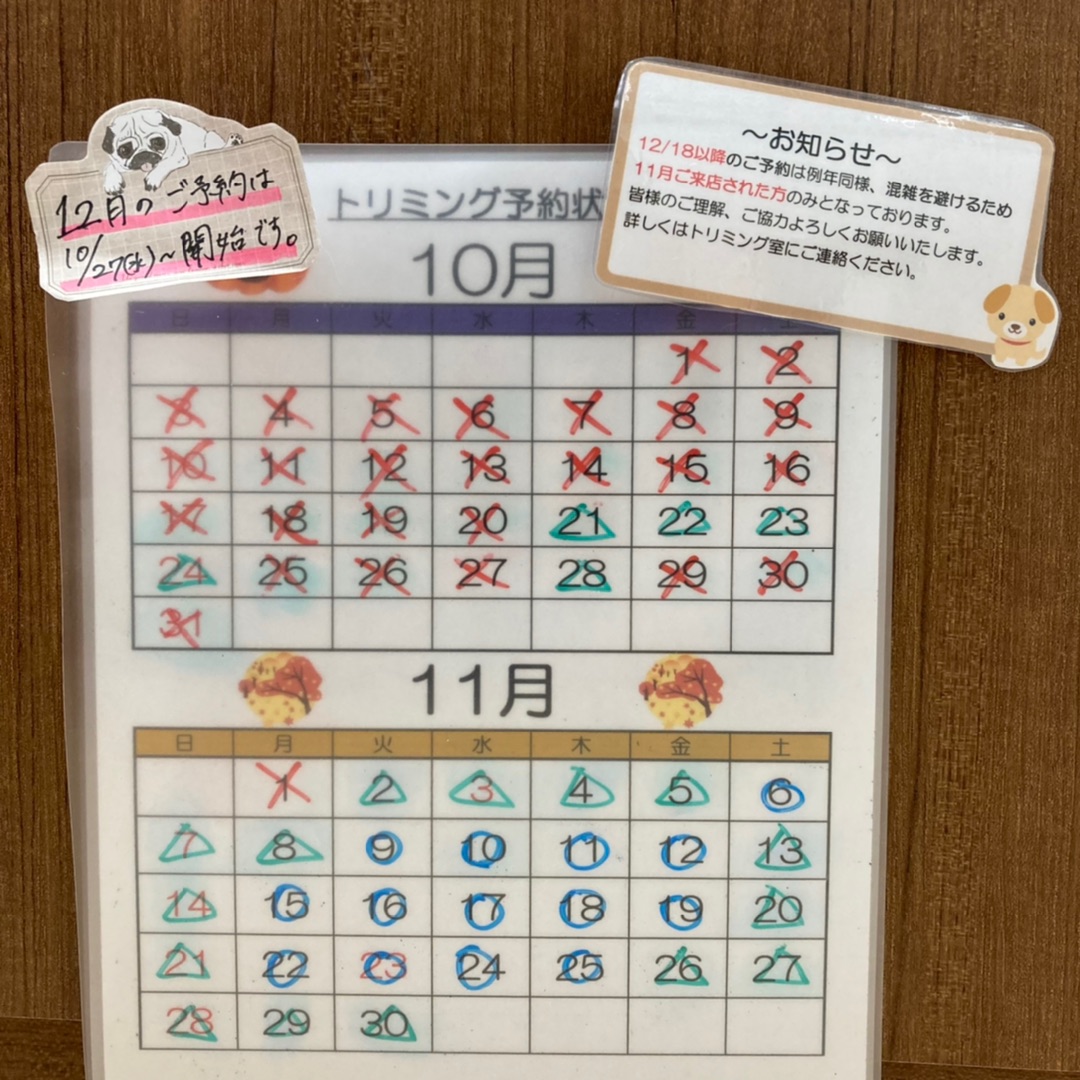 12月のご予約は
10/27(水)〜開始です。
〜お知らせ〜
12/18以降のご予約は例年同様、混雑を避けるため
11月ご来店された方のみとなっております。
皆様のご理解、ご協力よろしくお願いいたします。
詳しくはトリミング室にご連絡ください。
トリミング予約状
10月
日 月 火 水 木 金 土
1 2
3 4 5 6 7 8 9
10 11 12 13 14 15 16
17 18 19 20 21 22 23
24 25 26 27 28 29 30
31
11月
日 月 火 水 木 金 土
1 2 3 4 5 6
7 8 9 10 11 12 13
14 15 16 17 18 19 20
21 22 23 24 25 26 27
28 29 30